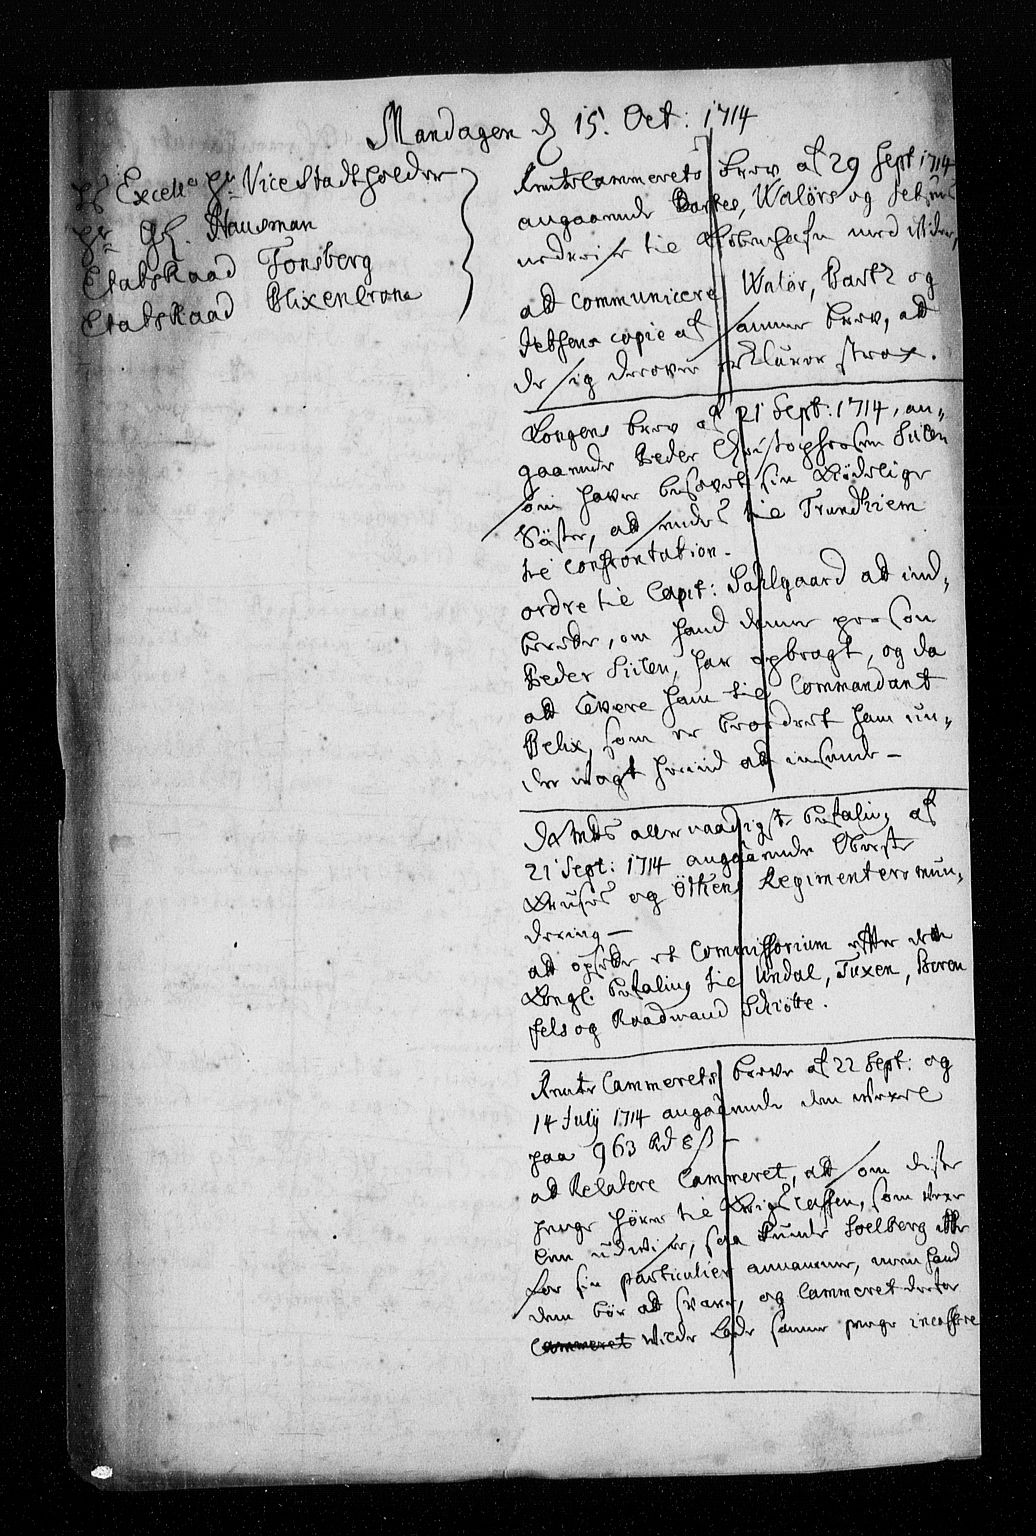 Mandagen d 15. Oct: 1714
Hs Excell: Hr Vice Stadtholder
Hr GL. Hausman
Etatskaad Tonsberg
Etatskaad Blixencrone
Rente Cammerets brev af 29 Sept 1714
angaaende Bartes, Walørs og Jetsens
udreise til Kiøbenhafn med
att communicere Walør, Bartz og
Jetsens copie af samme brev, att
de sig derover erklærer strax.
Kongens brev af 21 Sept: 1714, an-
gaaende Peder Christophersen Siilen
som hafver besovet sin Kiødelige
Søster, att sendes til Trundhiem
til confrontation.
ordre til Capt: Dahlgaard att ind-
berette, om hand denne person
Peder Siilen, har opbragt, og da
att levere ham til Commandant
Belix, som er beordret ham un-
der vagt hiid att indsende -
Do Mts allernaadigste befaling af
21 Sept: 1714 angaaende Oberste
Kruses og Ötkens Regimenters mun-
dering -
att opsette et Commissorium efter den
Kongl: befaling til Undal, Tuxen, Boron
fels og Raadmand Schiøtte.
Rente Cammerets breve af 22 Sept: og
14 July 1714 angaaende den vexel
paa 963 Rd 8 ß -
at Relatere Cammeret, att som disse
penge hører til Krigs Cassen, som vexe
len udviser, saa kunde Soelberg ikke
for sin particulier annamme, men hand
dem bør att svare, og Cammeret derfor
Cammeret wilde lade samme penge incassere